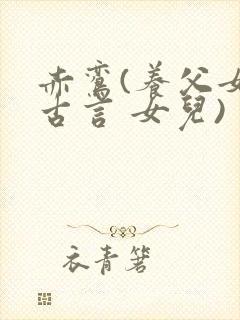 赤鸞(養父女
古言 女兒)
衣青箬